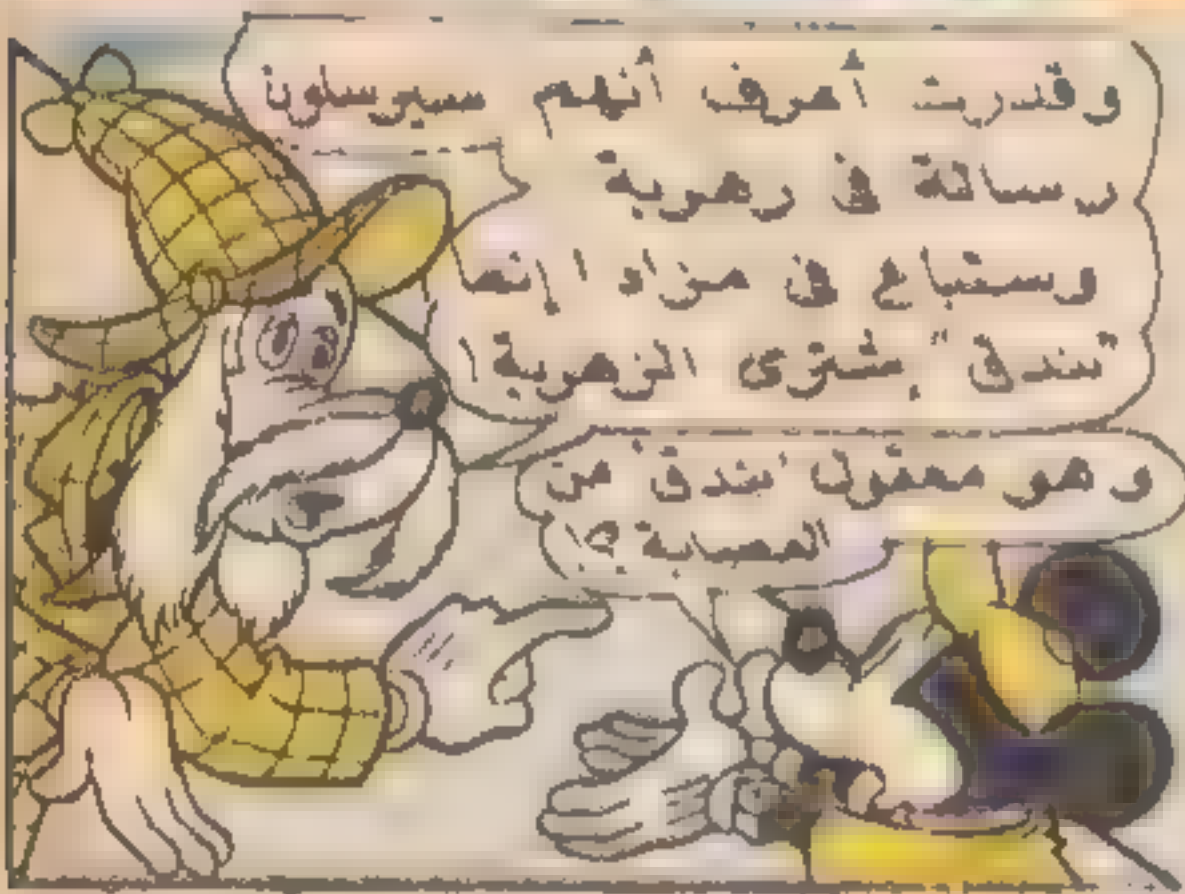 وقدرت أعرف أنهم سيرسلون
رسالة في زهرية
وستباع في مزاد إنما
"بندق" يشترى الزهرية!
وهو معقول "بندق" من
العصابة ؟!